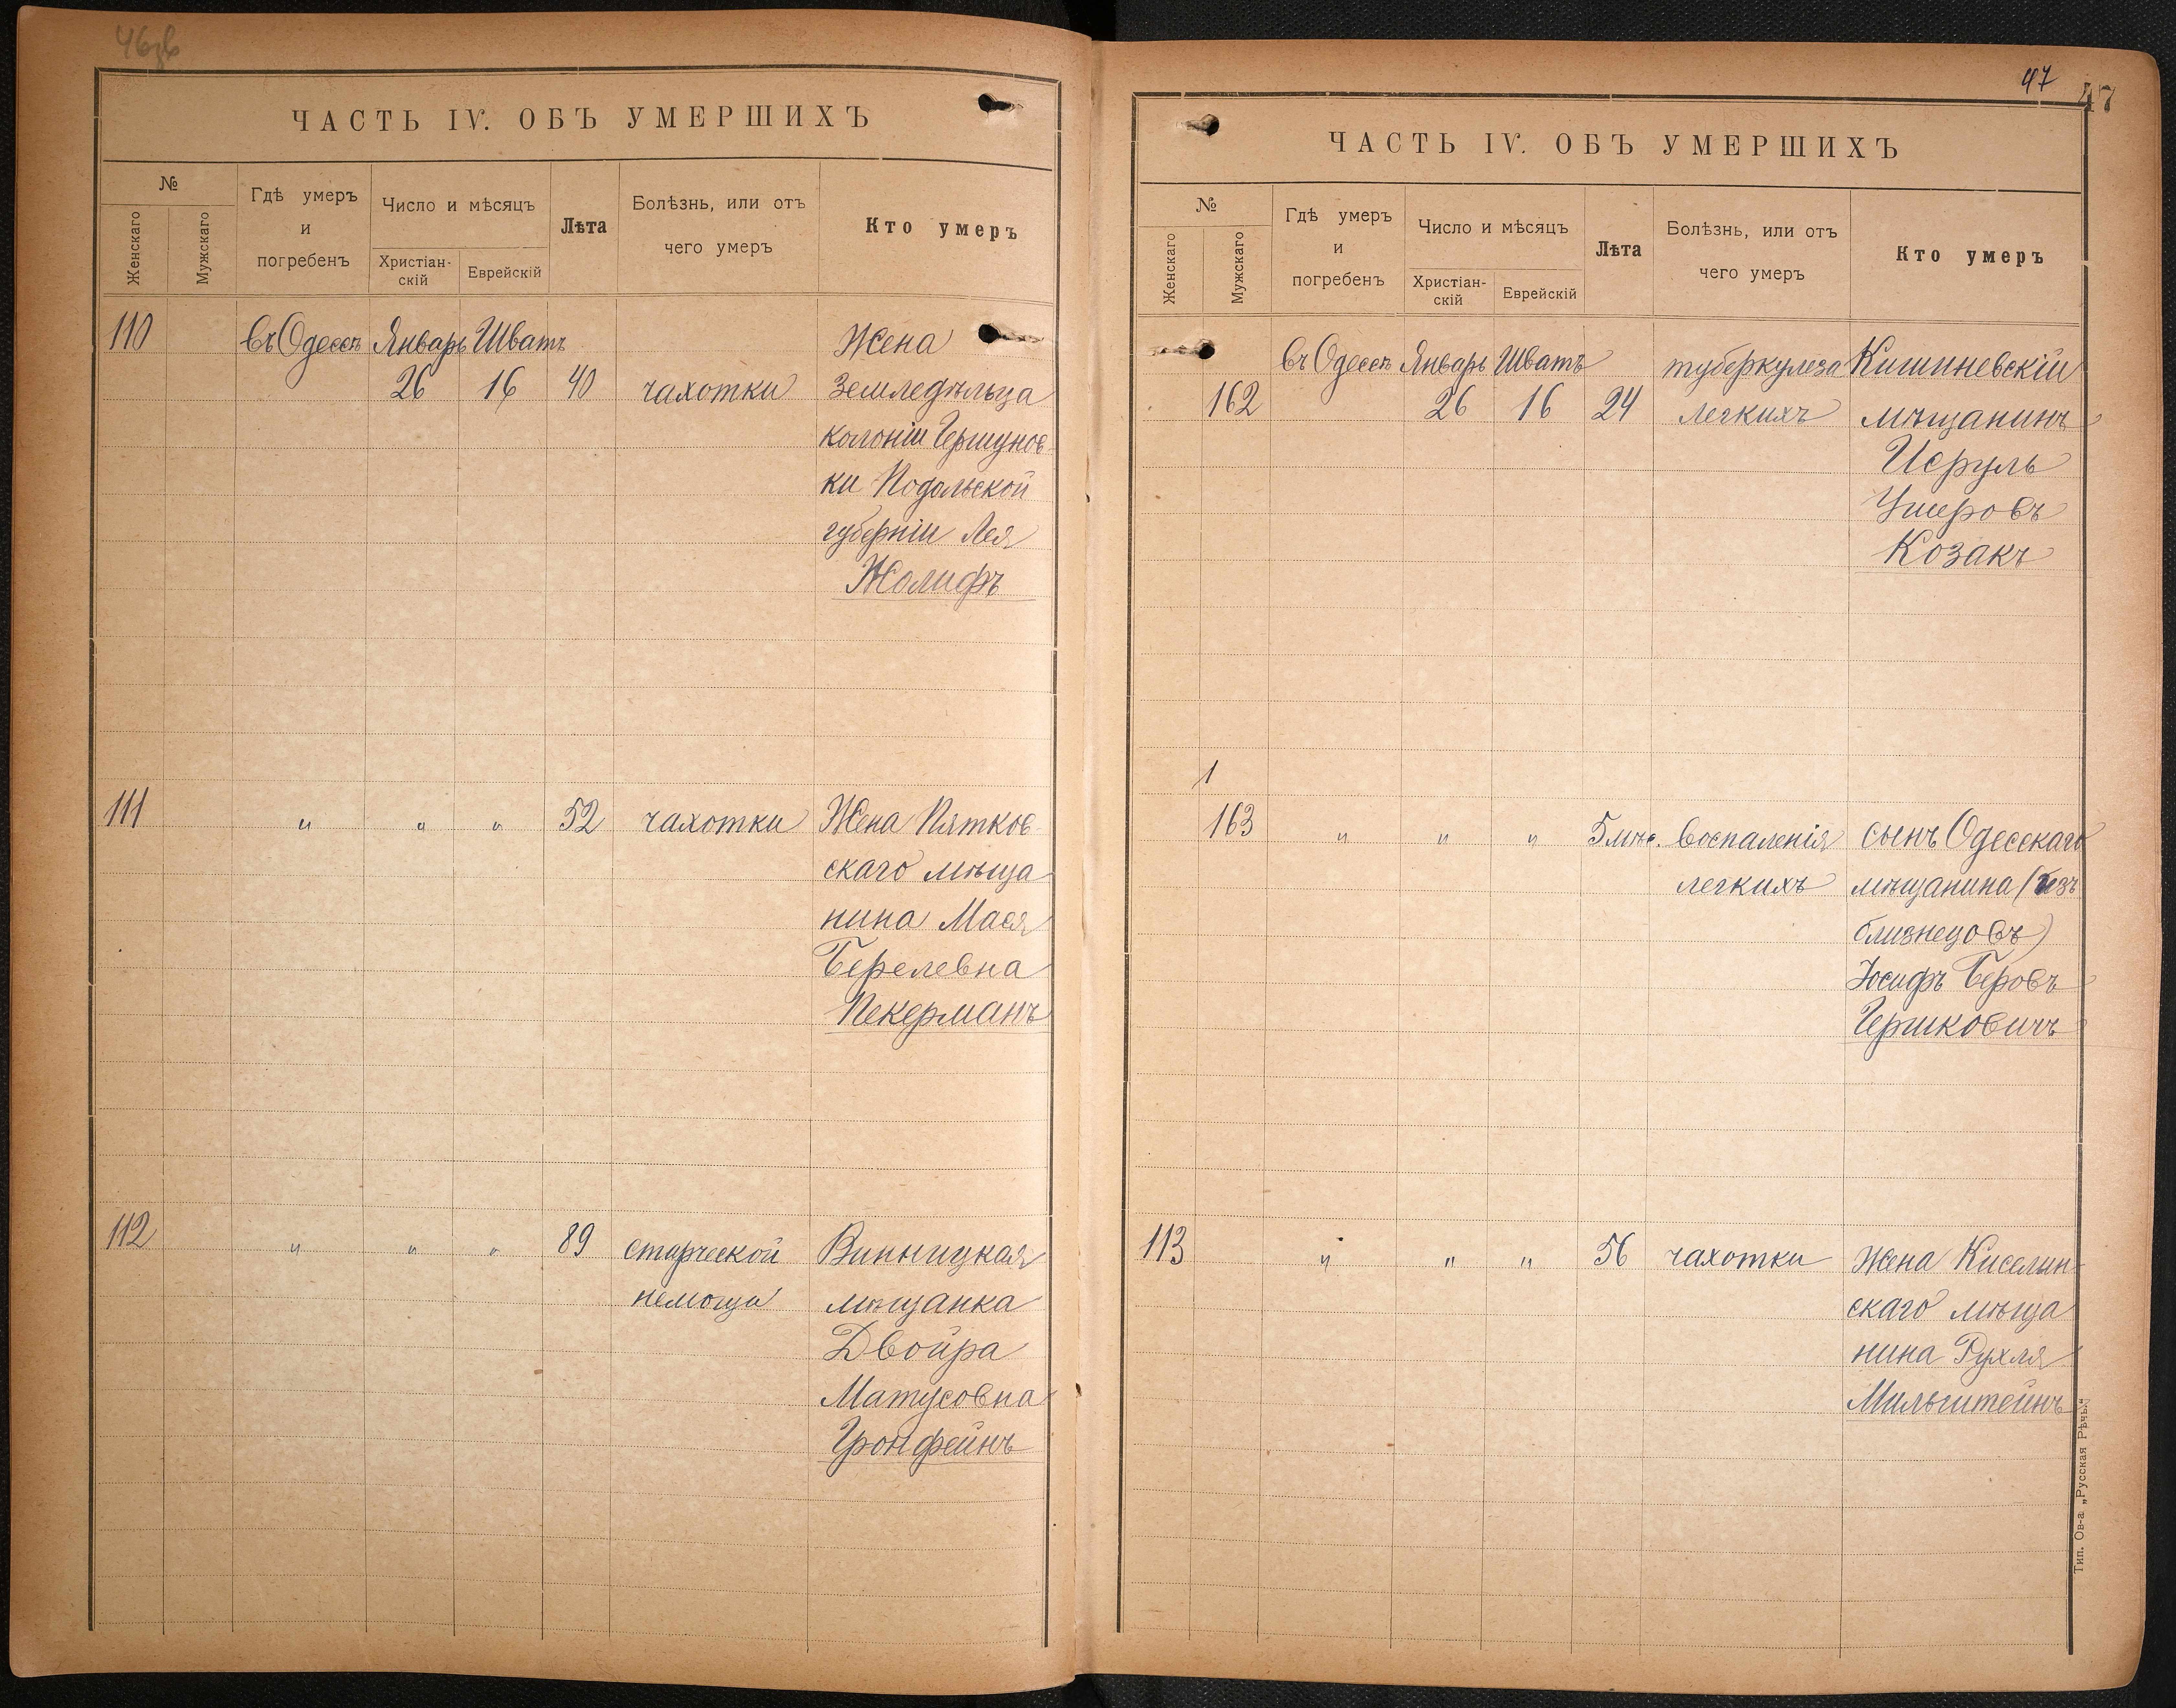 46об
ЧАСТЬ IV. ОБЪ УМЕРШИХЪ
№
Женскаго
Мужскаго
Гдѣ умеръ
и
погребенъ
Число и мѣсяцъ
Христіан-
скій
Еврейскій
Лѣта
Болѣзнь, или отъ
чего умеръ
Кто умеръ
110 въ Одессѣ Январь Шватъ Жена
26 16 40 чахотки земледѣльца
колоніи Гершунов-
ки Подольской
губерніи Лея
Жолифъ
111 " " " 52 чахотки Жена Пятков-
скаго мѣща
нина Мася
Берелевна
Пекерманъ
112 " " " 89 старческой Винницкая
немощи мѣщанка
Двойра
Матусовна
Гронфейнъ
47
47
ЧАСТЬ IV. ОБЪ УМЕРШИХЪ
№
Женскаго
Мужскаго
Гдѣ умеръ
и
погребенъ
Число и мѣсяцъ
Христіан-
скій
Еврейскій
Лѣта
Болѣзнь, или отъ
чего умеръ
Кто умеръ
въ Одессѣ Январь Шватъ туберкулеза Кишиневскій
162 26 16 24 легкихъ мѣщанинъ
Исруль
Ушеровъ
Козакъ
1
163 " " " 5 мѣс. воспаленія сынъ Одесскаго
легкихъ мѣщанина (изъ
близнецовъ)
Іосифъ Беровъ
Гершковичъ
113 " " " 56 чахотки Жена Киселин-
скаго мѣща
нина Рухля
Мильштейнъ
Тип. Ов-а „Русская Рѣчь."